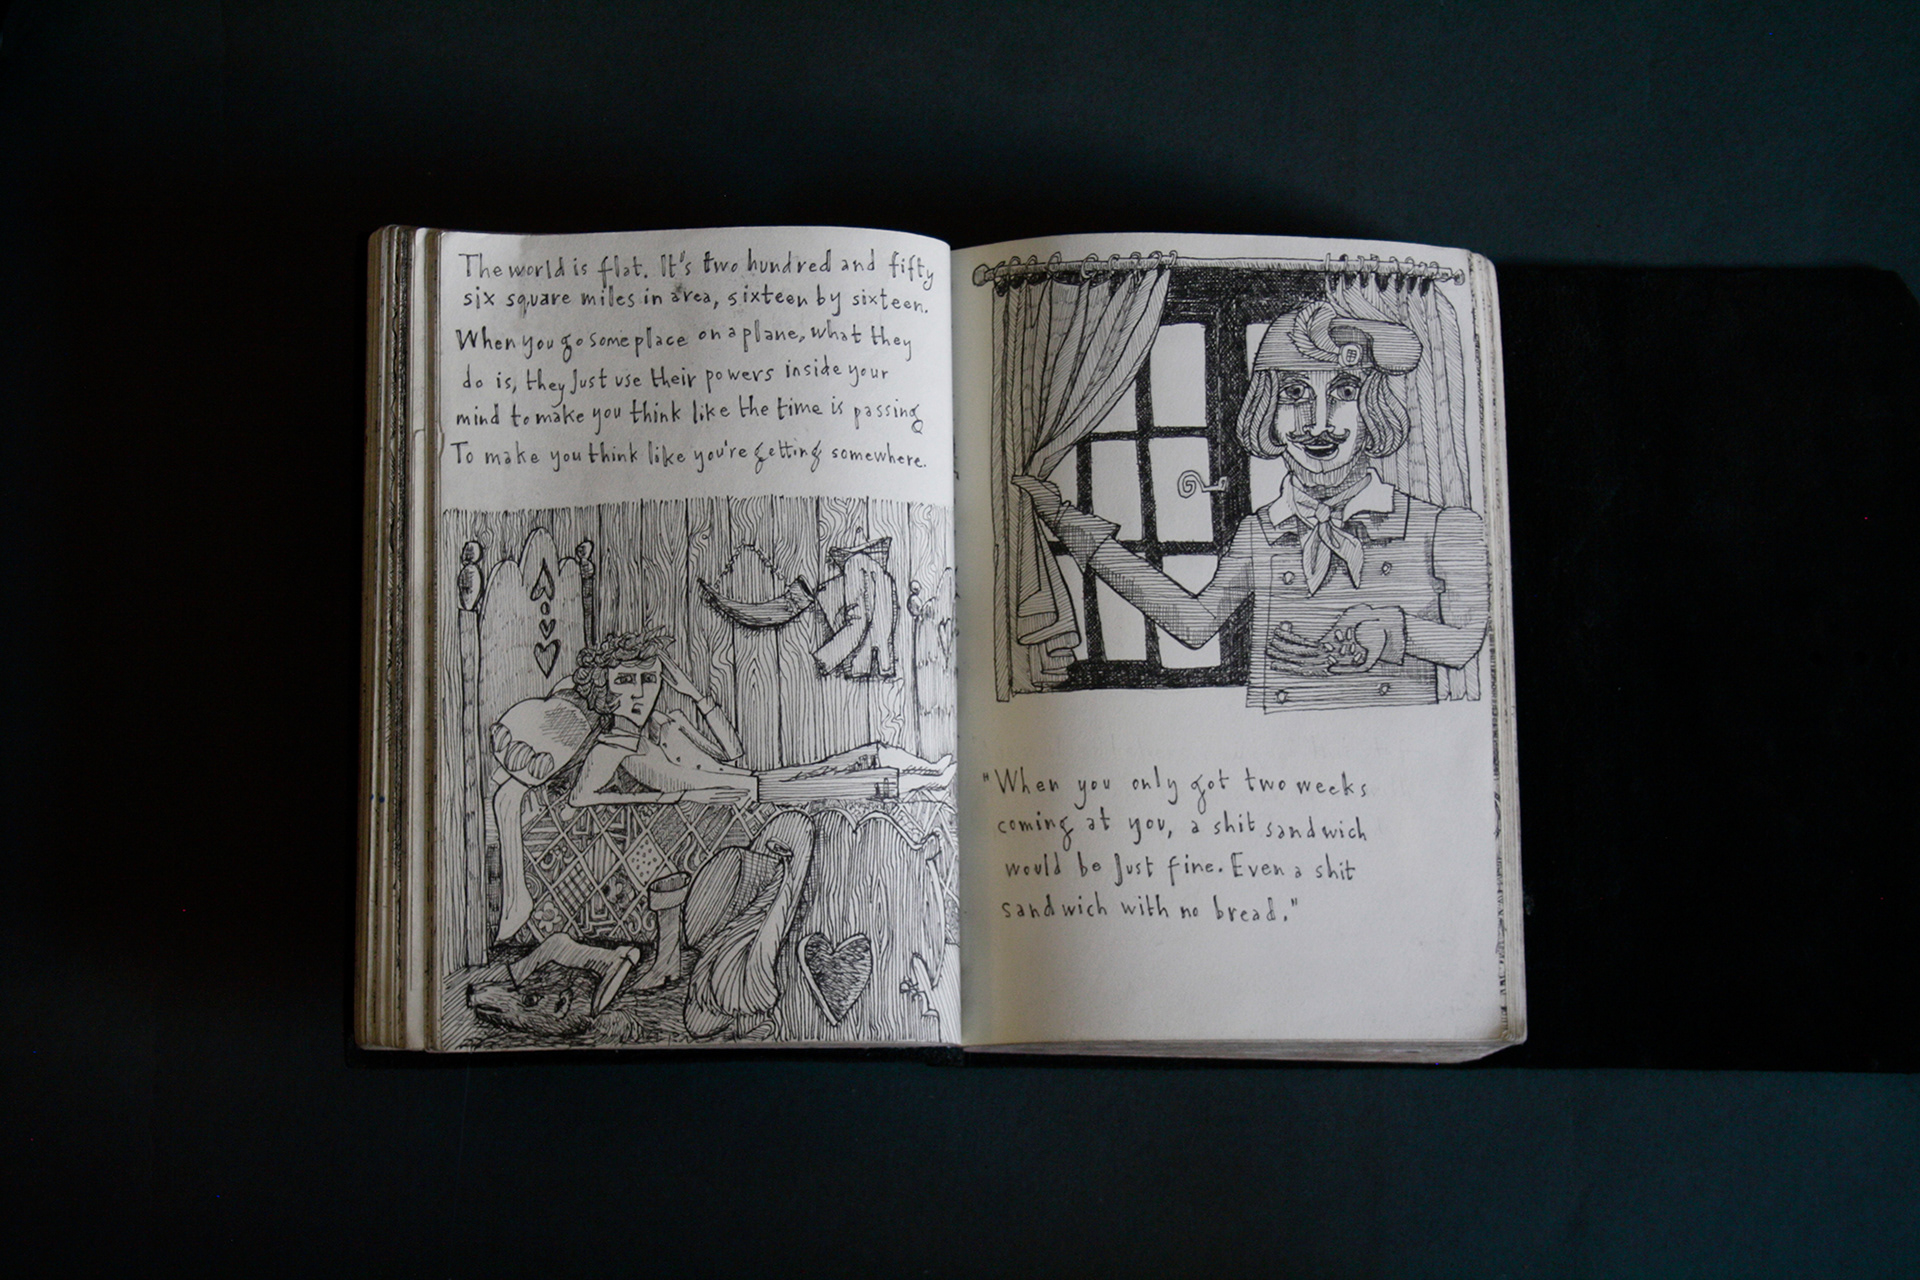 The world is flat. It's two hundred and fifty
six square miles in area, sixteen by sixteen.
When you go some place on a plane, what they
do is, they just use their powers inside your
mind to make you think like the time is passing
To make you think like you're getting somewhere.
"When you only got two weeks
coming at you, a shit sandwich
would be just fine. Even a shit
sandwich with no bread."